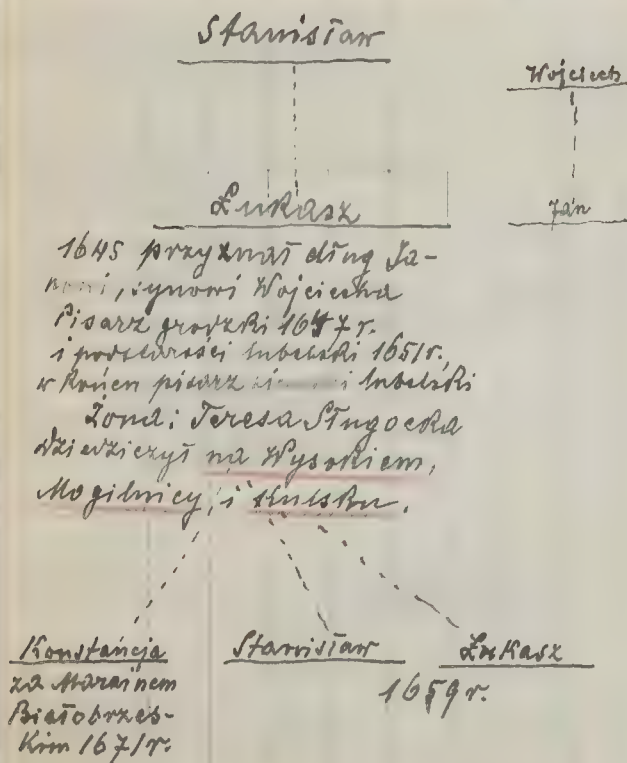 Stanisław
Wojciech
Łukasz
Jan
1645 przyznał dług Ja-
nowi, synowi Wojciecha
Pisarz grodzki 1647 r.
i podstarości lubelski 1651 r.,
w końcu pisarz lubelski
Żona: Teresa Sługocka
Dziedziczył na Wysokiem,
Mogilnicy, i
Konstancja
Stanisław
Łukasz
za
1659 r.
Białobrzes-
kim 1671 r.